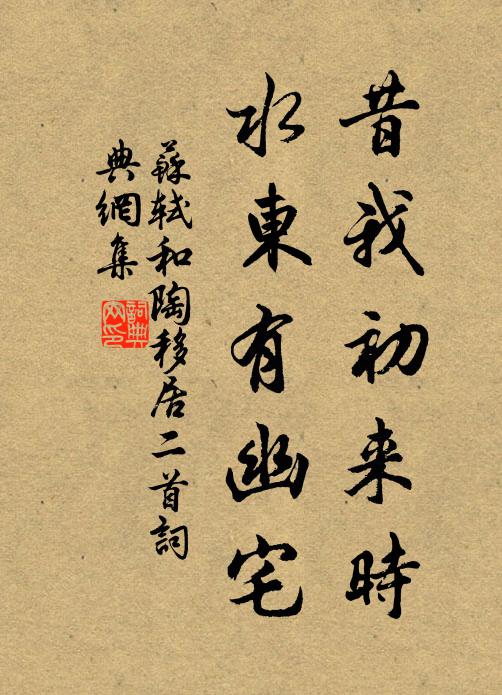 昔我初来時
水東有幽宅
蘇軾和陶移居二首詞
典網集
詞典网印